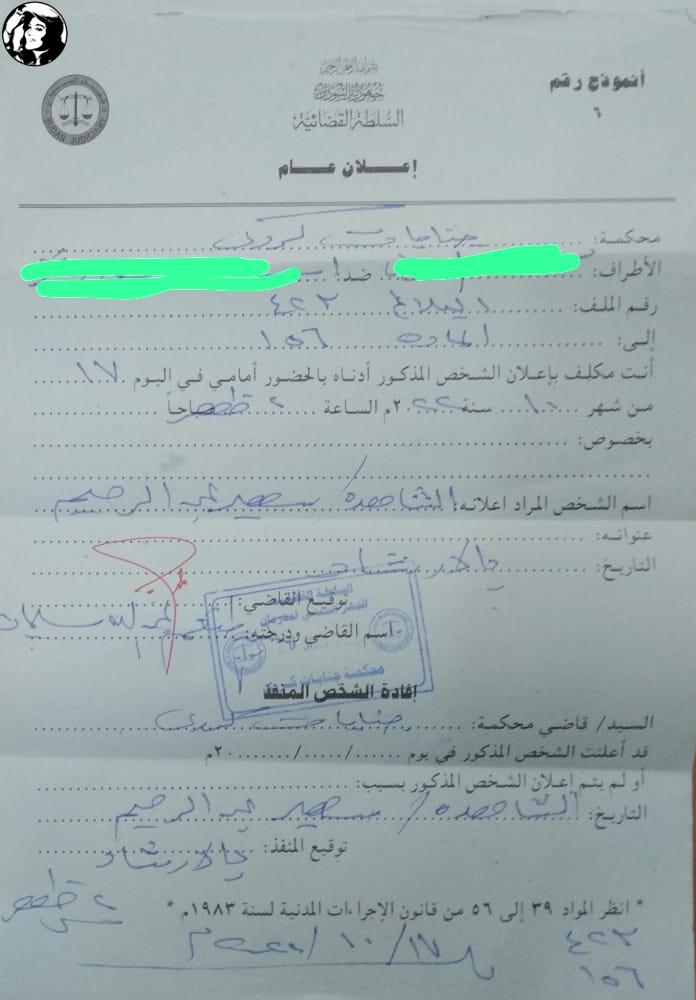 بسم الله الرحمن الرحيم
جمهورية السودان
السلطة القضائية
أنموذج رقم
٦
SUDAN JUDICIARY
إعلان عام
محكمة: جنايات كرري
الأطراف: ضد
رقم الملف: البلاغ ٤٢٣
إلى: المادة ١٥٦
أنت مكلف بإعلان الشخص المذكور أدناه بالحضور أمامي في اليوم ١٧
من شهر ١٠ سنة ٢٠٢٢م الساعة ٢ ظهر صباحاً
بخصوص:
اسم الشخص المراد اعلانه: الشاهدة / سهير عبد الرحيم
عنوانه:
التاريخ: بالارشاد
توقيع القاضي:
اسم القاضي ودرجته:
السلطة القضائية
محكمة جنايات
إفادة الشخص المنفذ
السيد/ قاضي محكمة: جنايات كرري
قد أعلنت الشخص المذكور في يوم ....../....../......٢٠م
أو لم يتم إعلان الشخص المذكور بسبب:
التاريخ: الشاهدة / سهير عبد الرحيم
توقيع المنفذ: بالارشاد
* انظر المواد ٣٩ إلى ٥٦ من قانون الإجراءات المدنية لسنة ١٩٨٣م *
٢ ظهر
١٧/١٠/٢٠٢٢م
٤٢٣
١٥٦